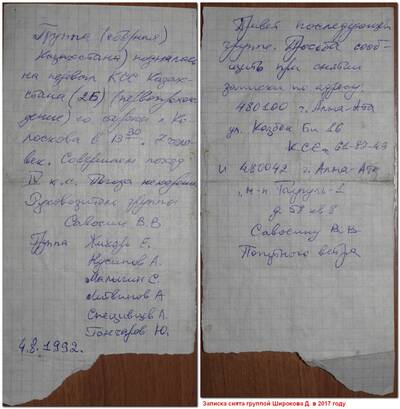 Группа (сборная
Казахстана) поднялась
на перевал КСС Казах-
стана (2Б) (первопрохож-
дение) со стороны л. Ко-
лоскова в 13³⁰. 7 чело-
век. Совершаем поход
IV к.с. Погода
Руководитель группы
Савосин В.В
Группа Жихарь Е.
Кусипов А.
Малыгин С.
Литвинов А
Спешивцев А.
Гончаров Ю.
4.8.1992.
Привет последующей
группе. Просьба сооб-
щить при снятии
записки по адресу
480100 г. Алма-Ата
ул. Казбек Би 16
КСС т. 61-87-49
и 480042 г. Алма-Ата
м-н Таугуль-1
д. 58 кв. 8
Савосину В.В.
Попутного ветра
Записка снята группой Широкова Д. в 2017 году